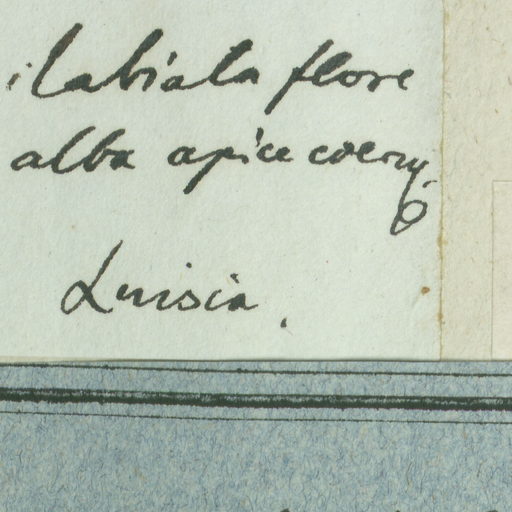 ilabiata flore
alba apice coeru
Luisia.